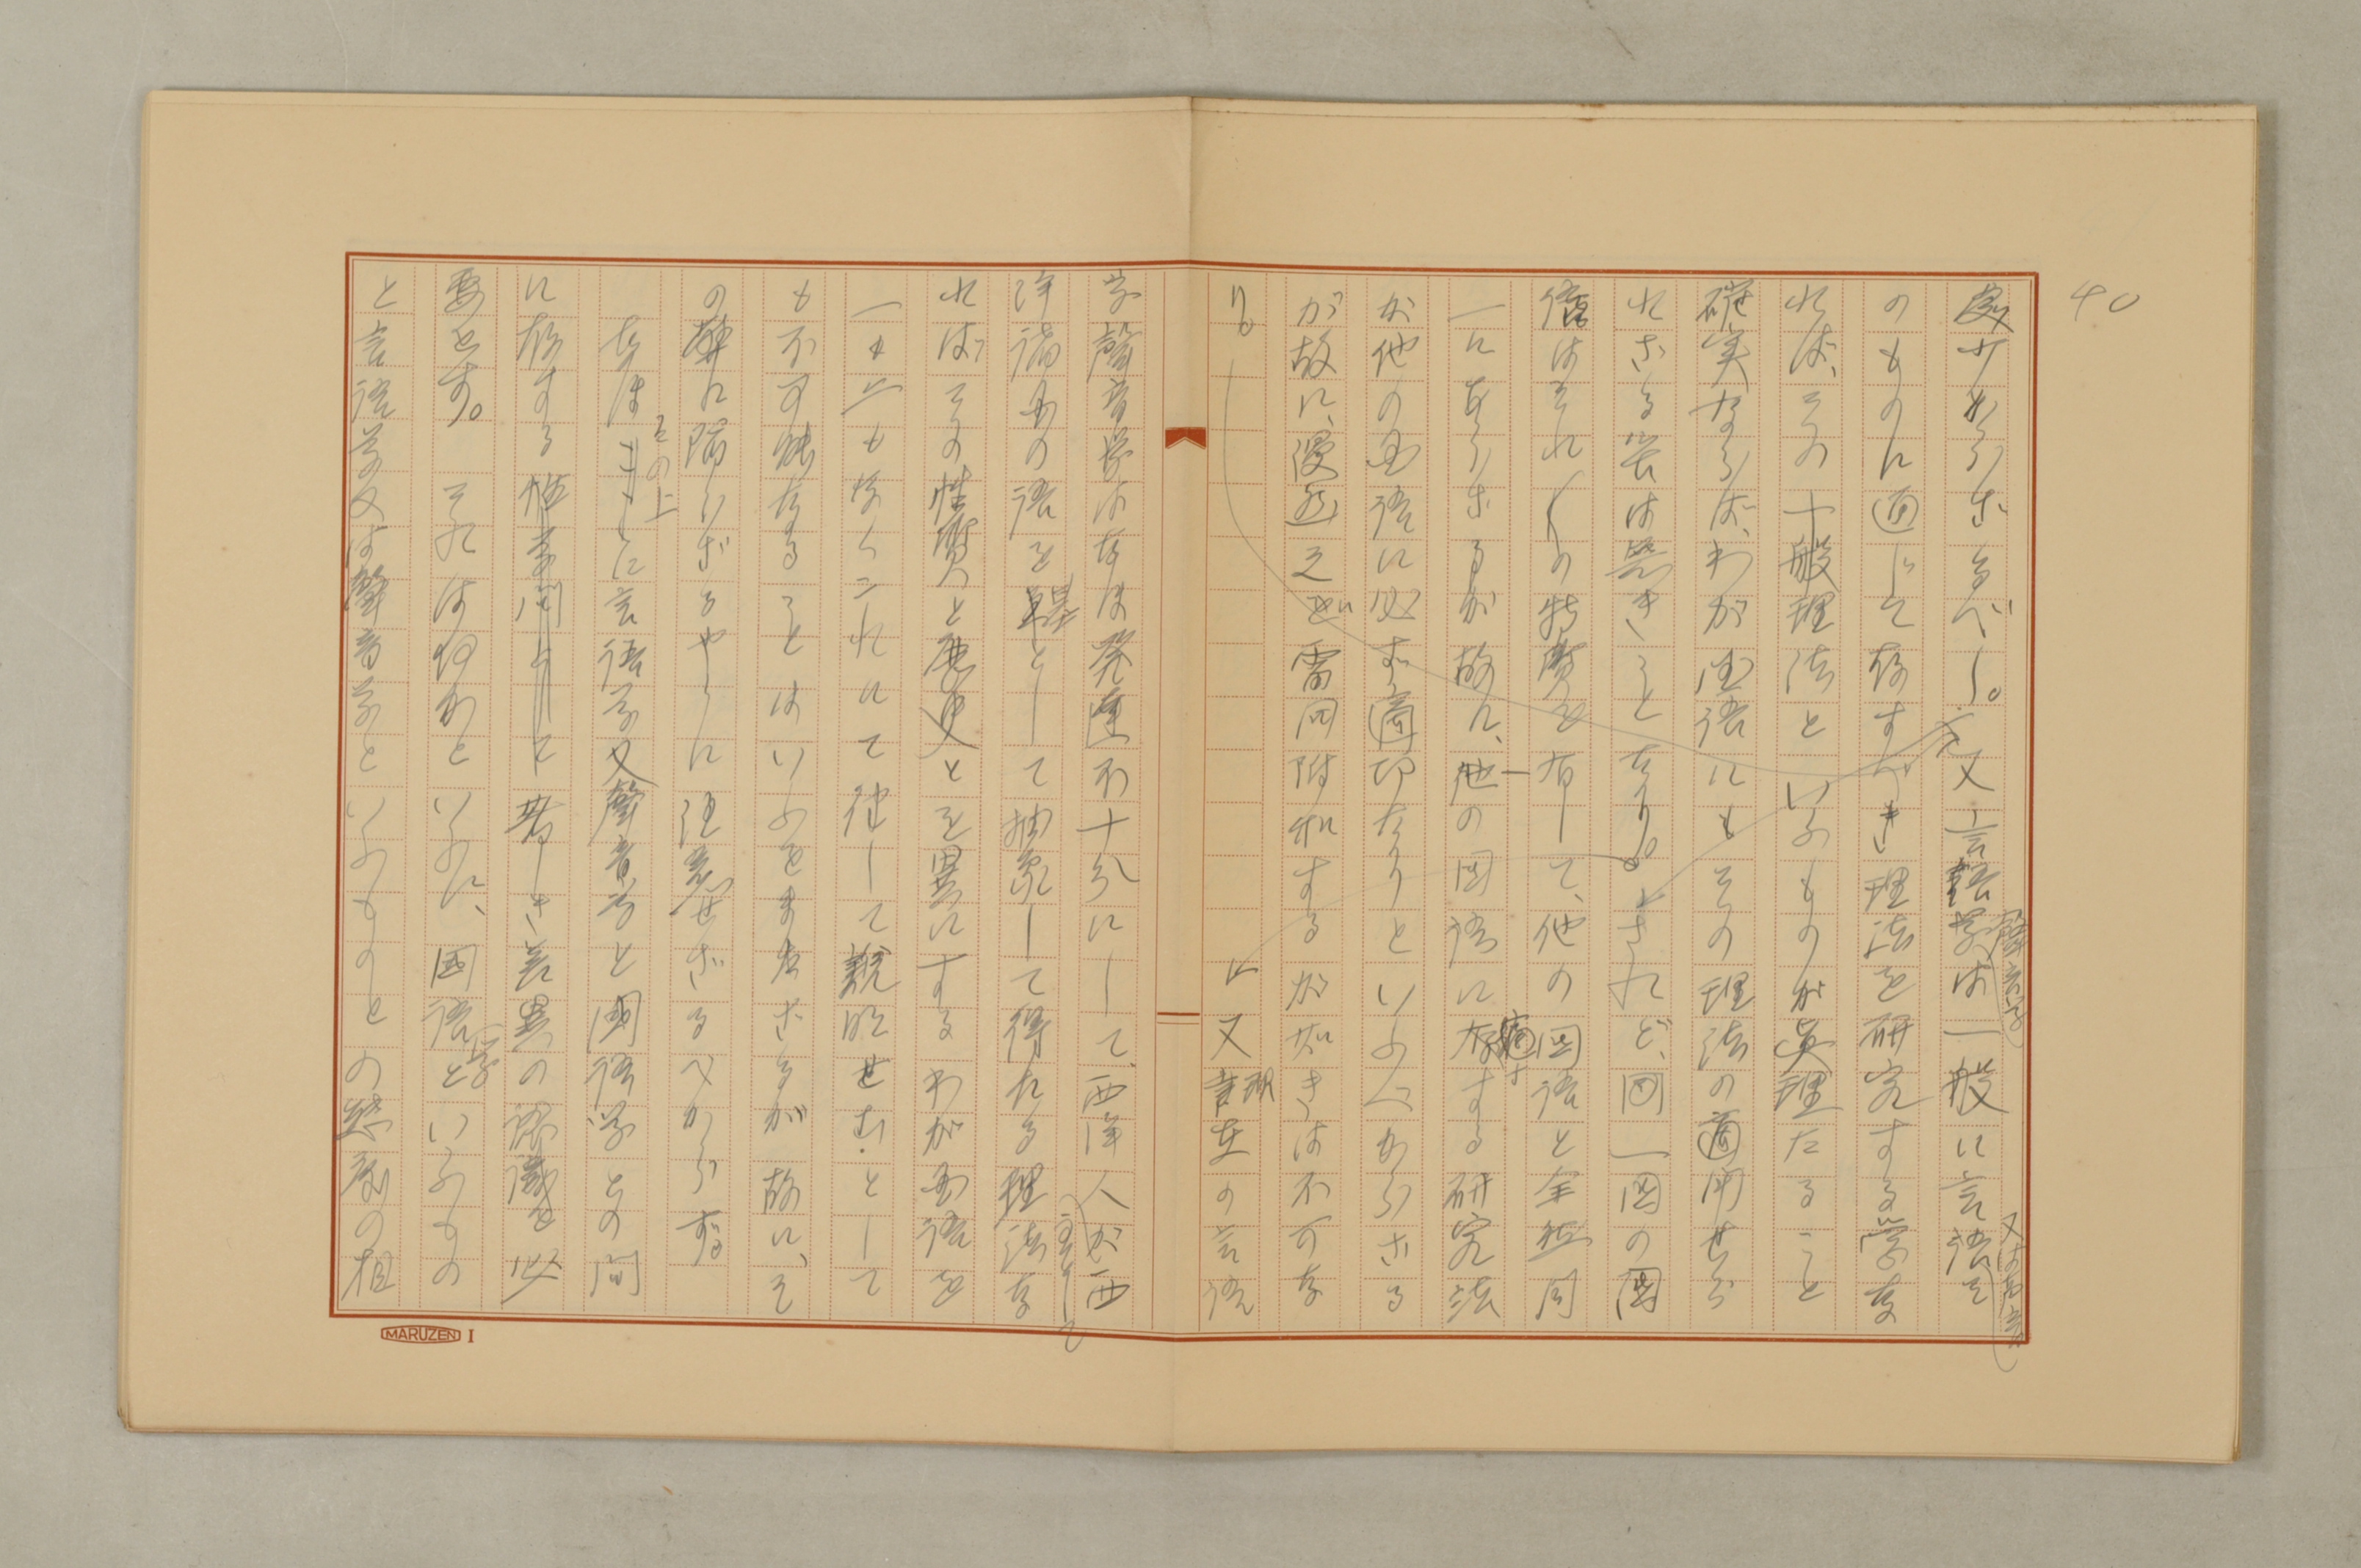 40
處少からざるべし。又言語學聲音學は一般に言語又は聲音
のものに通じて存すべき理法を研究する学な
れば、その一般理法といふものが眞理たること
確実ならば、わが国語にもその理法の適用せら
れざる筈は無きことなり。されど、国一国の國
語はそれ〱の特質を有して、他の国語と全然同
一にあらざるが故に、他の国語に適存する研究法
が他の国語に必ず適切なりといふべからざる
が故に、漫然之に雷同附和するが如きは不可な
り。又現在の言語
学聲音学はなほ発達不十分にして、西洋人が西
洋諸国の語を基として抽象して得たる理法な主として
れば、その性質と歴史とを異にするわが国語を
一も二も無くこれにて律して説明せむとして
も不可能なることはいふをまたざるが故に、そ
の弊に陥らざるやうに注意せざるべからず。
なほその上に言語学又聲音学と國語学との間
に存する性質間として著しき差異の認識を必
要とす。それは何かといふに、国語学といふもの
と言語学又は聲音学といふものとの態度の相
MARUZEN I